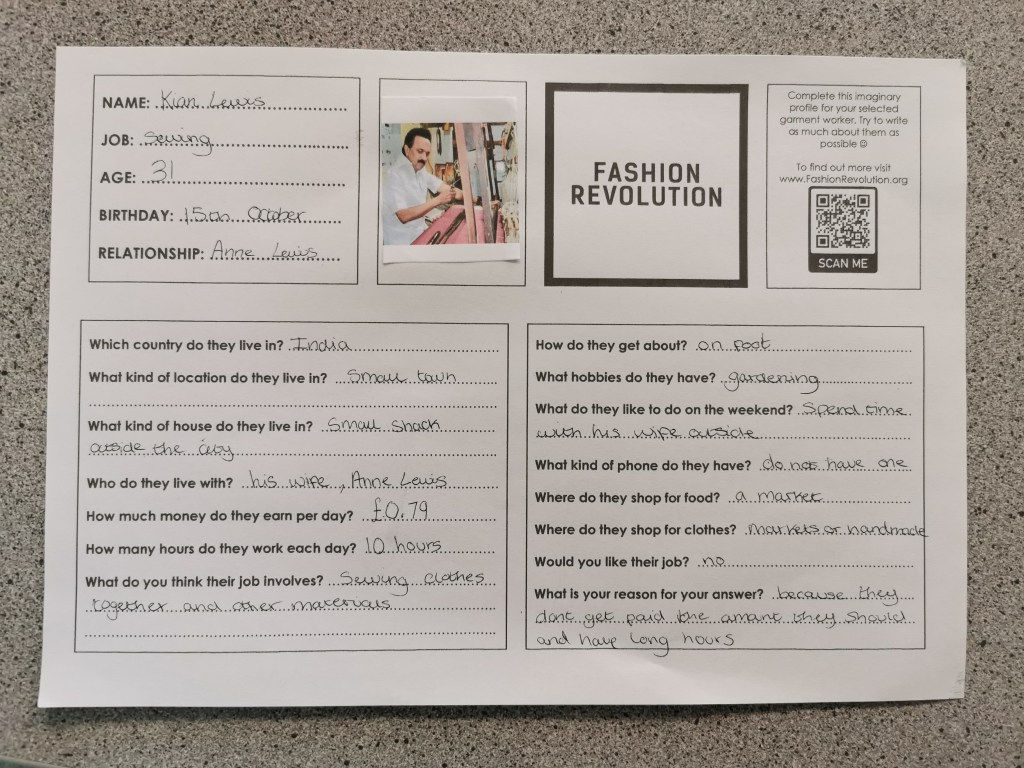 NAME: Kian Lewis
JOB: Sewing
AGE: 31
BIRTHDAY: 15th October
RELATIONSHIP: Anne Lewis
FASHION
REVOLUTION
Complete this imaginary
profile for your selected
garment worker. Try to write
as much about them as
possible ☺
To find out more visit
www.FashionRevolution.org
SCAN ME
Which country do they live in? India
What kind of location do they live in? Small town
What kind of house do they live in? Small shack
outside the city
Who do they live with? his wife, Anne Lewis
How much money do they earn per day? £0.79
How many hours do they work each day? 10 hours
What do you think their job involves? Sewing clothes
together and other materials
How do they get about? on foot
What hobbies do they have? gardening
What do they like to do on the weekend? Spend time
with his wife outside
What kind of phone do they have? do not have one
Where do they shop for food? a market
Where do they shop for clothes? markets or handmade
Would you like their job? no
What is your reason for your answer? because they
dont get paid the amant they should
and have long hours